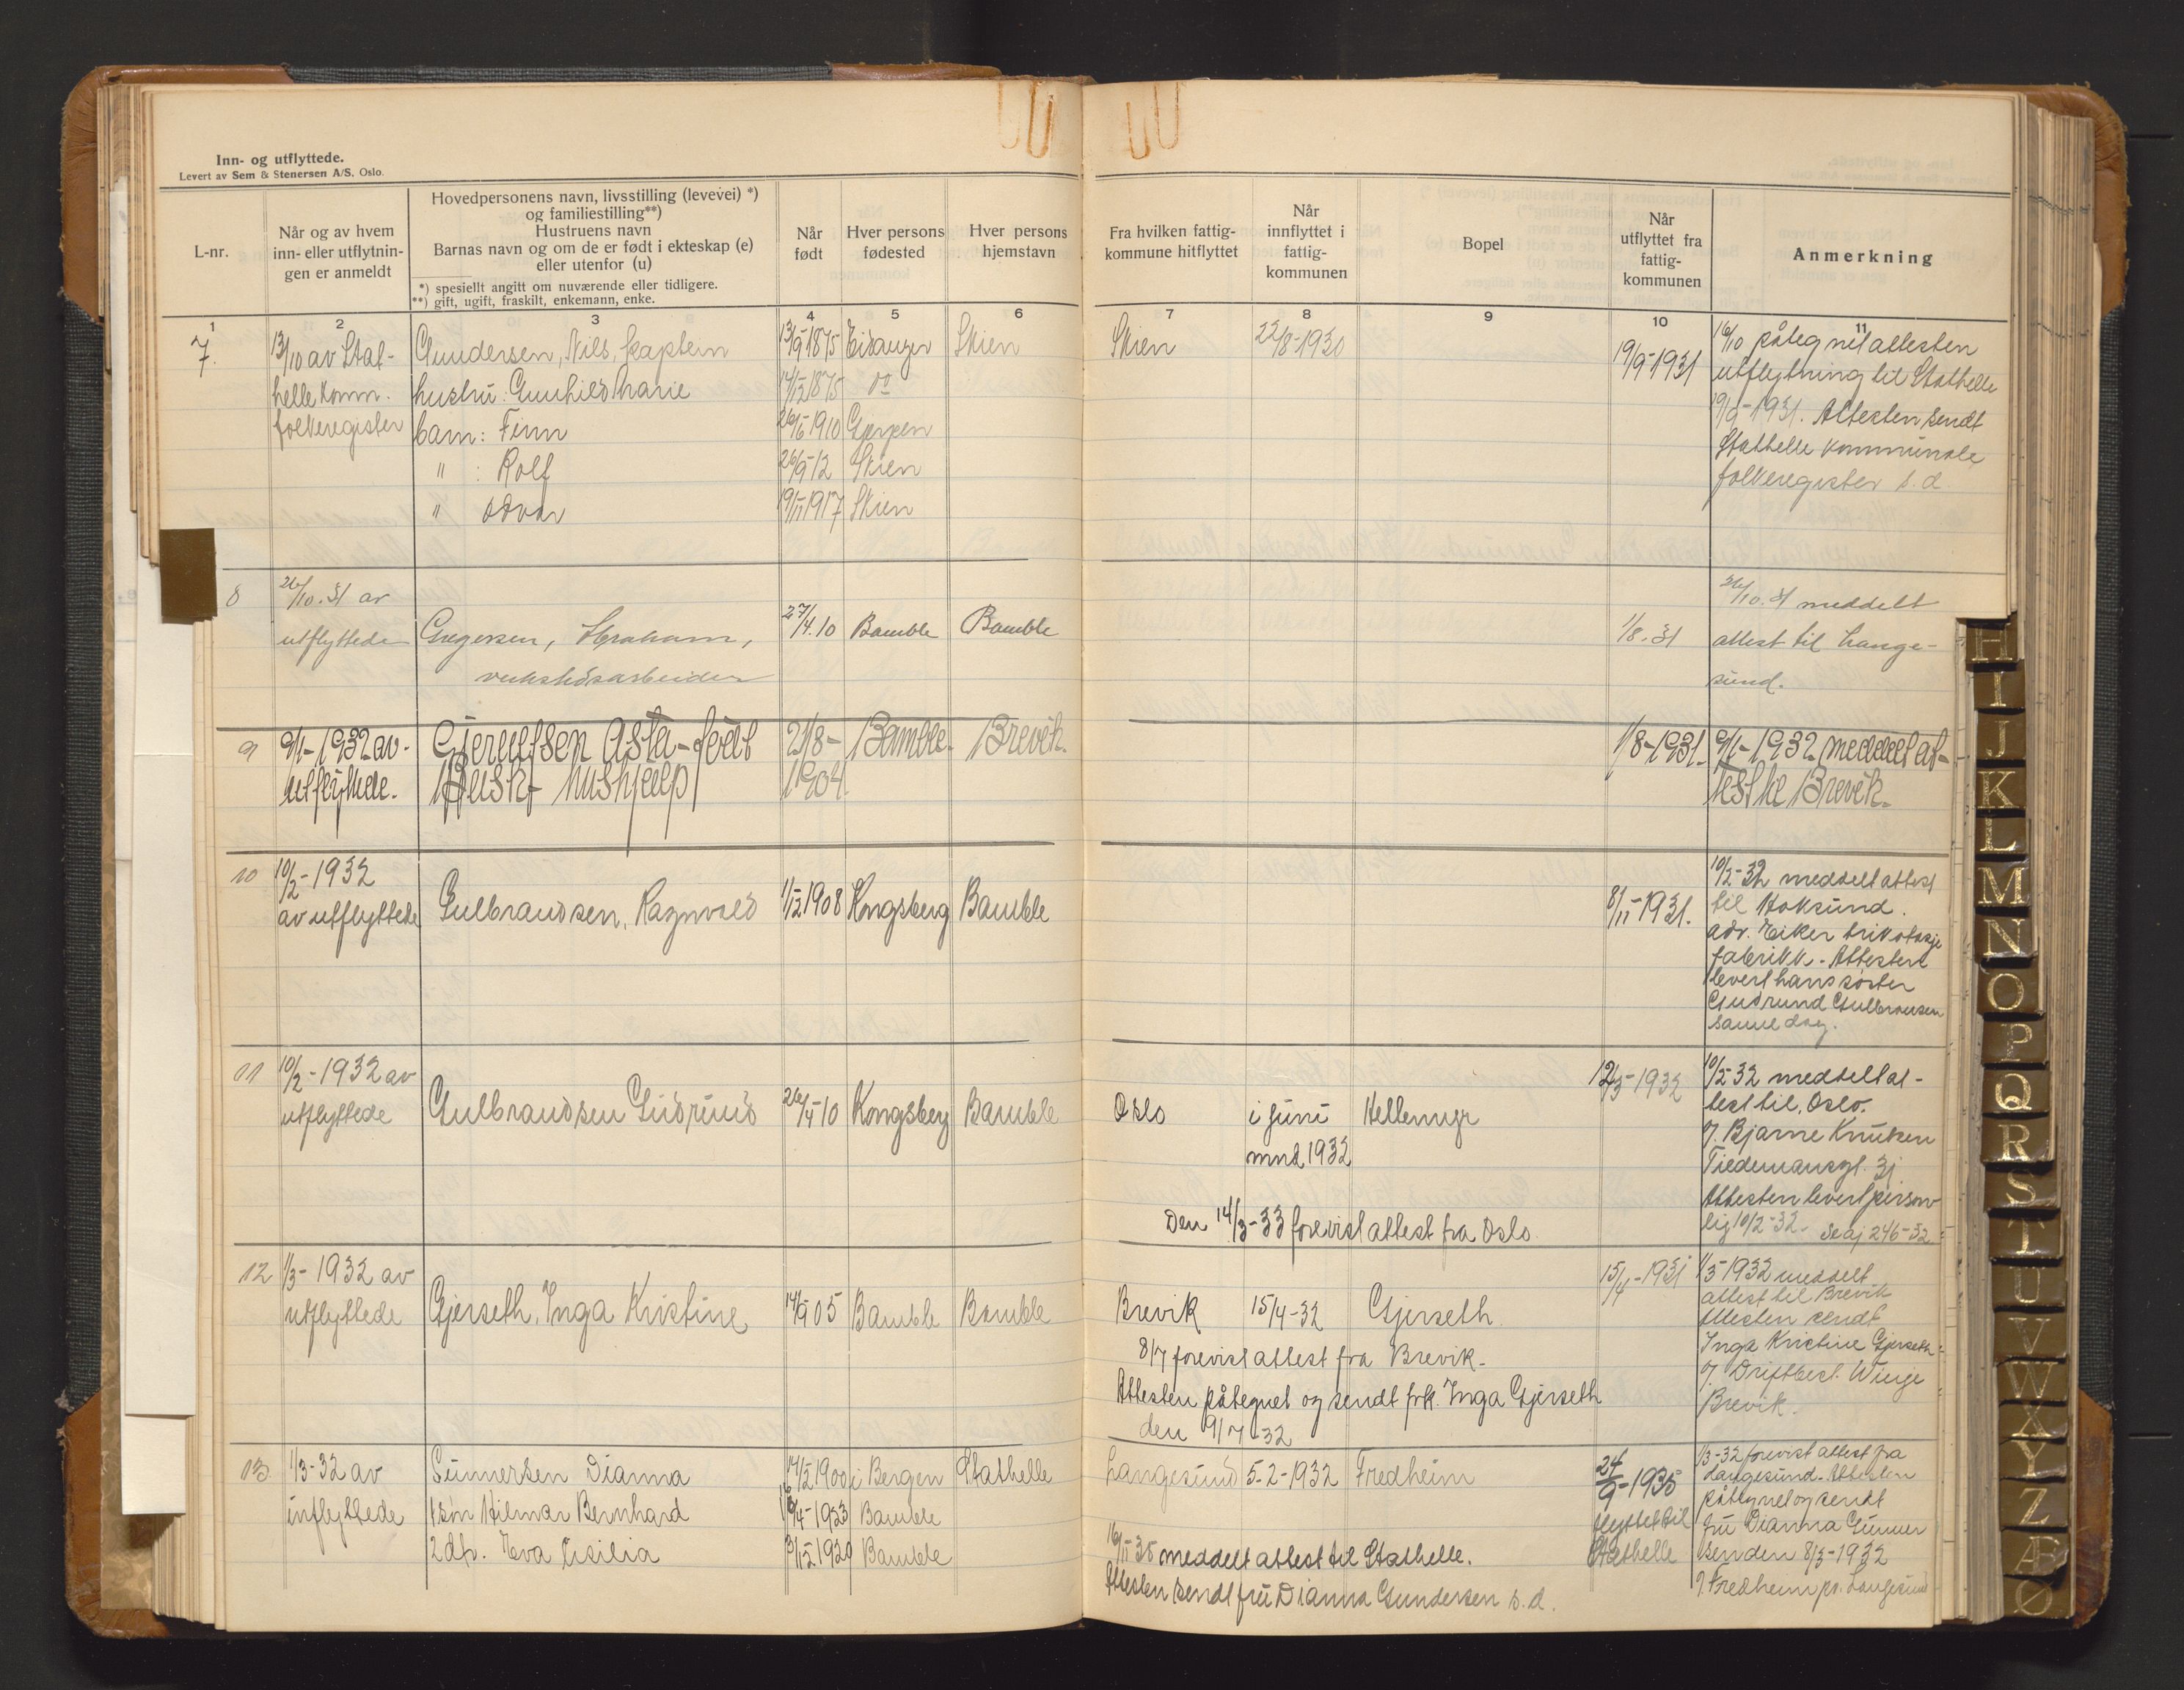 Inn- og utflyttede.
Levert av Sem & Stenersen A/S. Oslo.
L-nr.
Når og av hvem
inn- eller utflytnin-
gen er anmeldt
Hovedpersonens navn, livsstilling (levevei) *)
og familiestilling**)
Hustruens navn
Barnas navn og om de er født i ekteskap (e)
eller utenfor (u)
*) spesielt angitt om nuværende eller tidligere.
**) gift, ugift, fraskilt, enkemann, enke.
Når
født
Hver persons
fødested
Hver persons
hjemstavn
Fra hvilken fattig-
kommune hitflyttet
Når
innflyttet i
fattig-
kommunen
Bopel
Når
utflyttet fra
fattig-
kommunen
Anmerkning
1 2 3 4 5 6 7 8 9 10 11
7. 13/10 av Stat- Gundersen, Nils, kaptein 13/9 1875 Eidanger Skien Skien 22/8-1930 19/9-1931 16/10 påtegnet attesten
helle komm. hustru: Gunhild Marie 14/12 1875 do utflytning til Stathelle
folkeregister barn: Finn 26/6 1910 Gjerpen 19/9-1931. Attesten sendt
" : Rolf 26/9-12 Skien Stathelle kommunale
" Odvar 19/11 1917 Skien folkeregister s.d.
8 26/10.31 av 26/10.31 meddelt
utflyttede Gregersen, Abraham, 27/4.10 Bamble Bamble 1/8.31 attest til Lange-
verkstedsarbeider sund.
9 9/1-1932 av Gjerulfsen Asta - født 21/8- Bamble. Brevik. 1/8-1931. 9/1-1932 meddelt at-
utflyttede. hushjelp 1904. test til Brevik.
10 10/2-1932 10/2-32 meddelt attest
av utflyttede Gulbrandsen, Ragnvald 1/12 1908 Kongsberg Bamble 8/11-1931. til Hoksund.
adr. Eiker trikotasje
fabrikk. Attesten
levert hans søster
Gudrund Gulbransen
samme dag.
11 10/2-1932 av 12/3-1932 10/2-32 meddelt at-
utflyttede Gulbrandsen Gudrund 26/4-10 Kongsberg Bamble Oslo i juni Hellemyr test til Oslo.
mnd 1932 Bjarne Knutsen
Tiedemansgt. 3j
Attesten levert person-
Den 14/3-33 forevist attest fra Oslo. lig 10/2-32. Se aj 246-32
12 1/3-1932 av 15/4-1931 1/3-1932 meddelt
utflyttede Gjerseth, Inga Kristine 14/9 05 Bamble Bamble Brevik 15/4-32 Gjerseth attest til Brevik
Attesten sendt
8/7 forevist attest fra Brevik. Inga Kristine Gjerseth
Attesten påtegnet og sendt frk. Inga Gjerseth Driftbest. Winge
den 9/7-32 Brevik.
13 1/3-32 av Gunnersen Dianna 14/2 1900 i Bergen Stathelle Langesund 5-2-1932 Fredheim 24/9-1935 1/3-32 forevist attest fra
innflyttede 1 søn Hilmar Bernhard 16/4-1923 Bamble flyttet til Langesund. Attesten
2 dtr. Eva Cisilia 31/12 1920 Bamble Stathelle påtegnet og sendt
16/11-35 meddelt attest til Stathelle. fru Dianna Gunner
Attesten sendt fru Dianna Gundersen s.d. sen den 8/3-1932
Fredheim pr. Langesund
H
I
J
K
L
M
N
O
P
Q
R
S
T
U
V
W
X
Y
Z
Æ
Ø